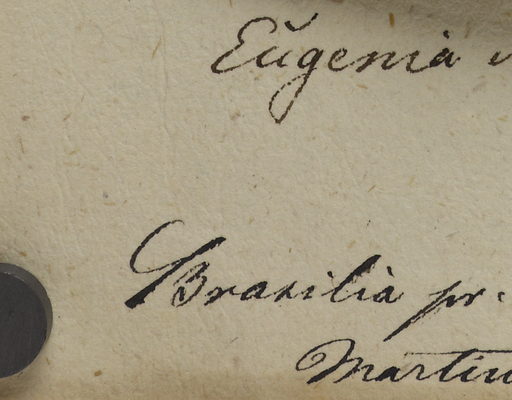 Eugenia
Brasilia pr.
Martiu